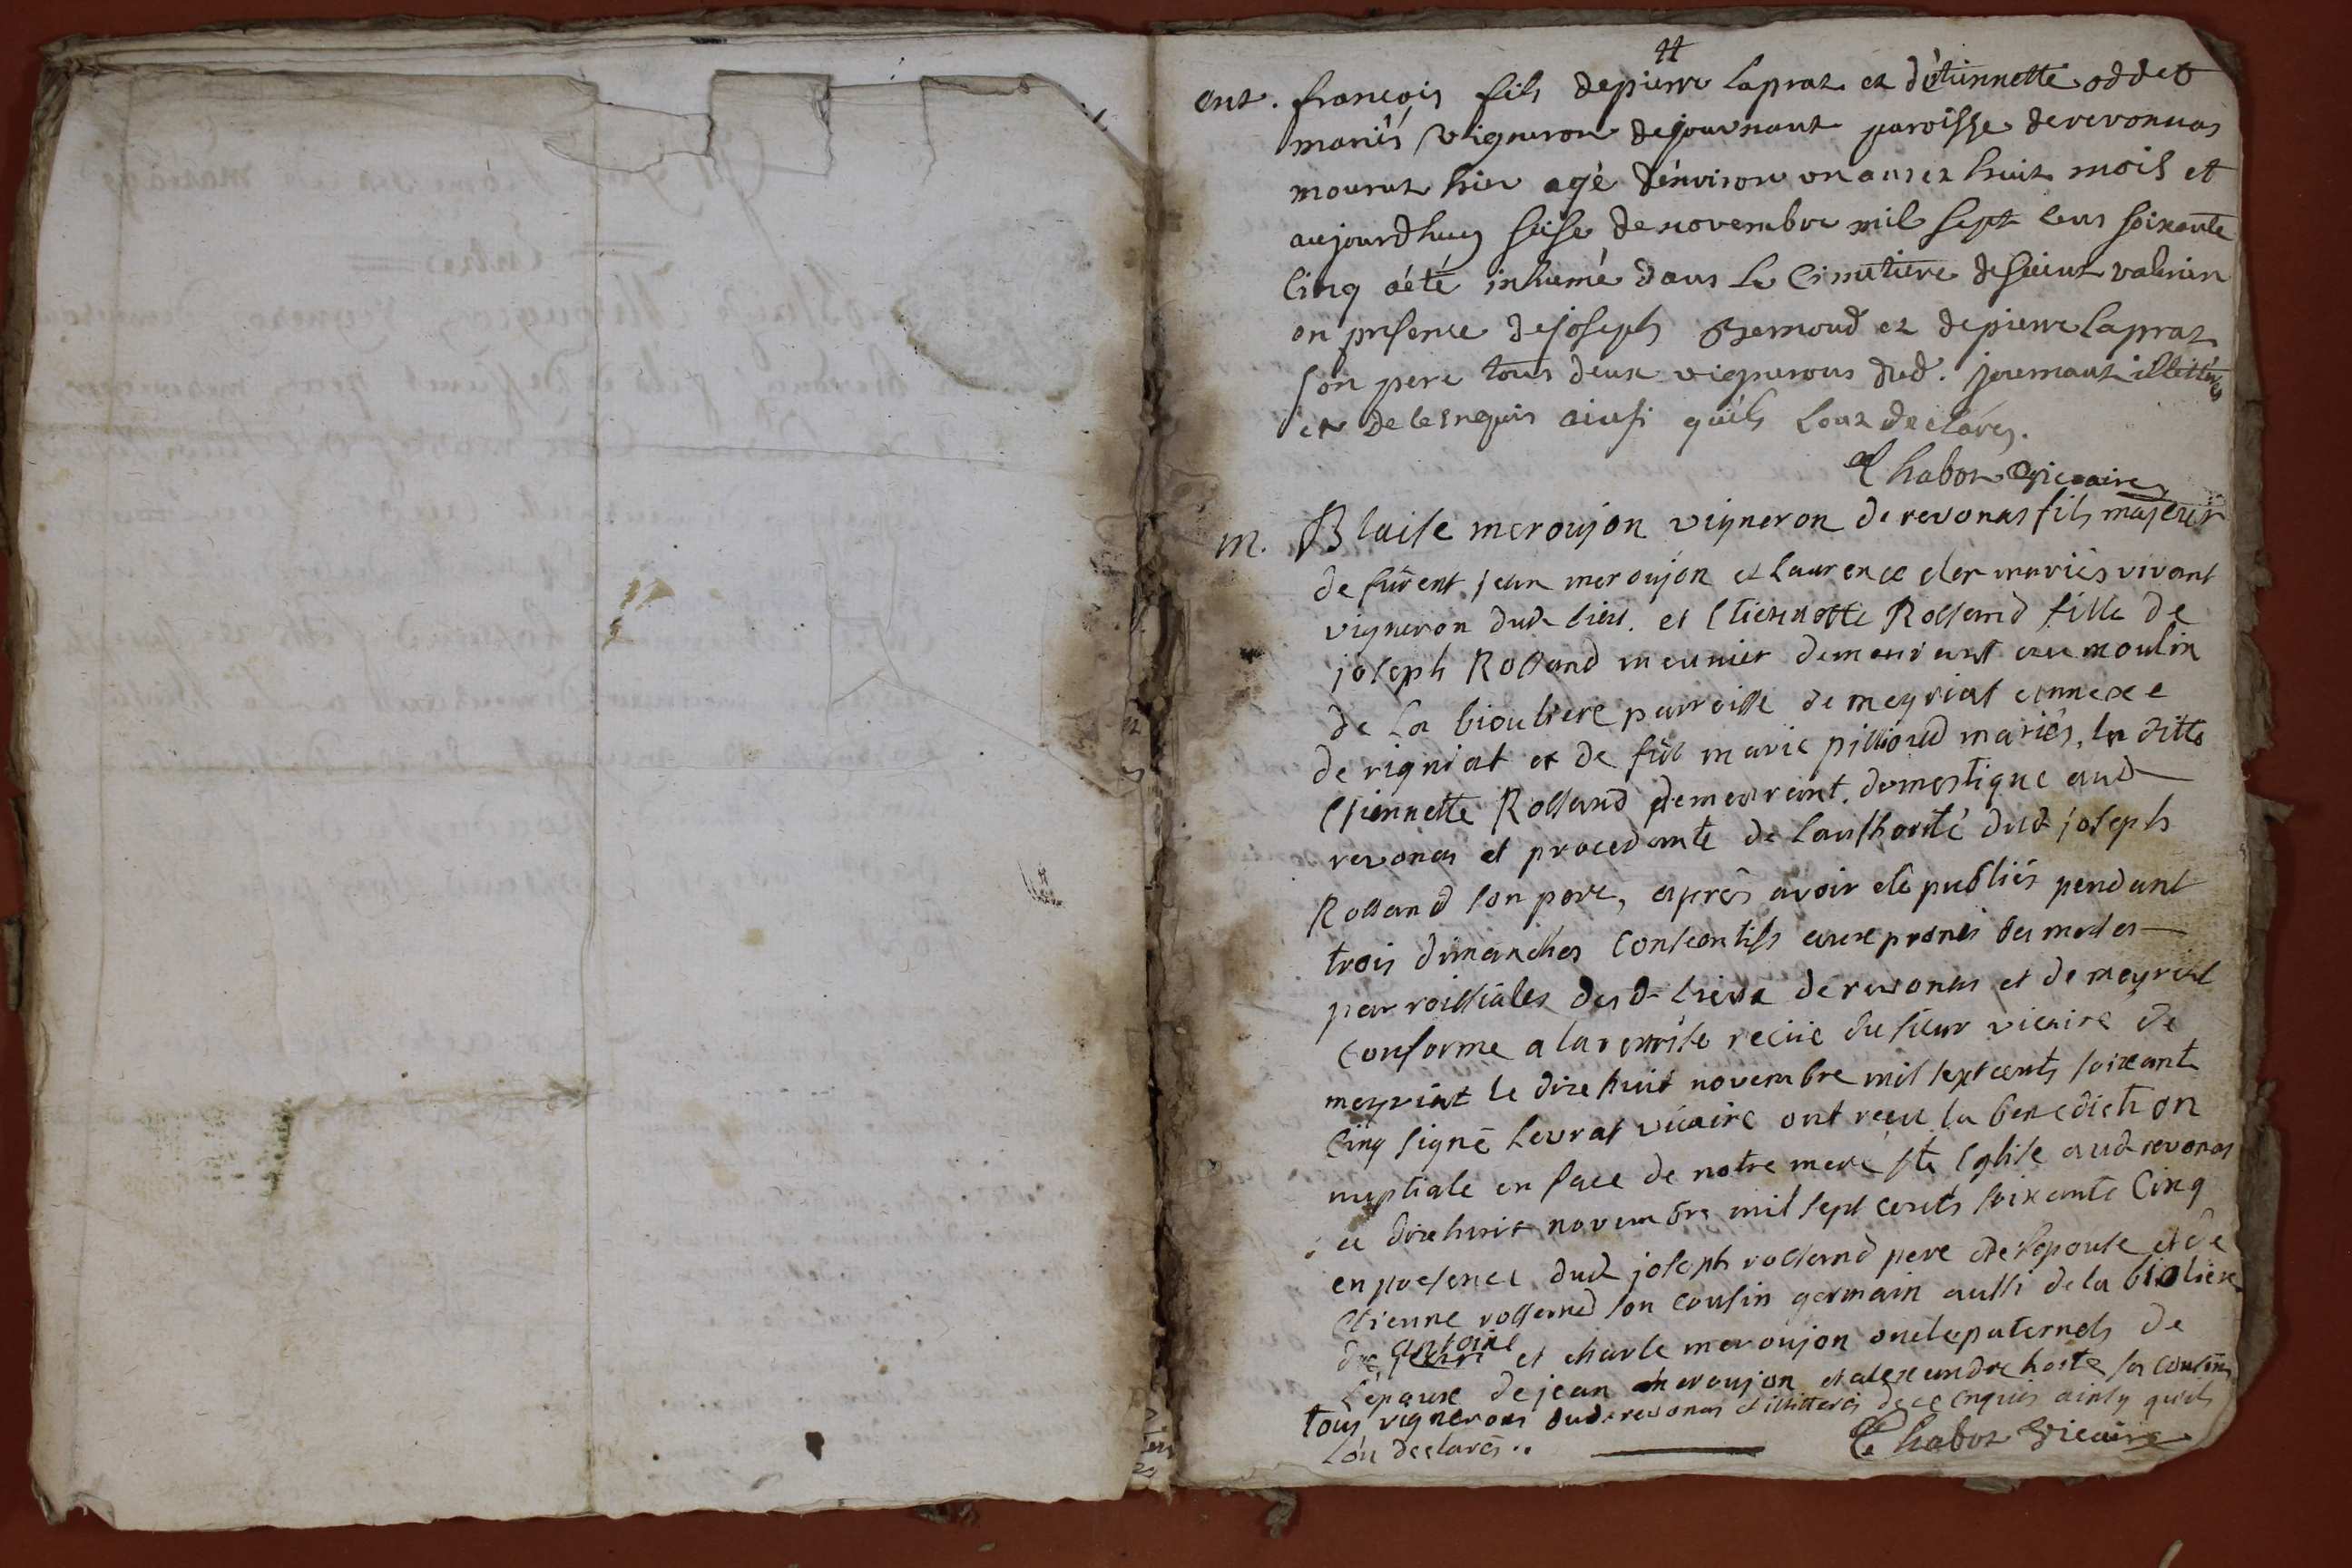 ent. françois fils de pierre lapraz et d'étiennette oddet
mariés vigneron de journant paroisse de revonnas
mourut hier agé d'environ un an et huit mois et
aujourdhuy seise de novembre mil sept cens soixante
cinq a été inhumé dans le cimetiere de saint valerien
en presence de joseph Bernoud et de pierre lapraz
son pere tous deux vignerons dud. journant illitterés
de ce enquis ainsi qu'ils l'ont declarés.
Chabot vicaire
m. Blaise meroujon vigneron de revonas fils majeur
de fûrent jean meroujon et laurence der mariés vivant
vigneron dud lieu. et Etiennette Rolland fille de
joseph Rolland meunier demeurant au moulin
de la biouliere parroisse de meyriat annexe
de rigniat et de fûe marie pillioud mariés, la ditte
Etiennette Rolland demeurant domestique aud
revonas et procedante de lauthorité dud joseph
Rolland son pere, aprés avoir eté publiés pendant
trois dimanches consecutifs aux prones des messes
parroissiales desd lieux de revonas et de meyriat
conforme a la remise reçûe du sieur vicaire de
meyriat le dixe huit novembre mil sept cents soixant
Cinq signé Levrat vicaire ont reçu la benediction
nuptiale en face de notre mere ste Eglise aud revonas
ce dixe huit novembre mil sept cents soixante Cinq
en presence dud joseph rolland pere de l'epouse et de
Etienne rolland son cousin germain aussi de la bioliere
de antoine et charle meroujon oncle paternels de
l'epoux de jean meroujon et alexandre hoste ses cousins
tous vignerons dud revonas illitterés de ce enquis ainsy quils
l'on declarés..
Chabot Vicaire